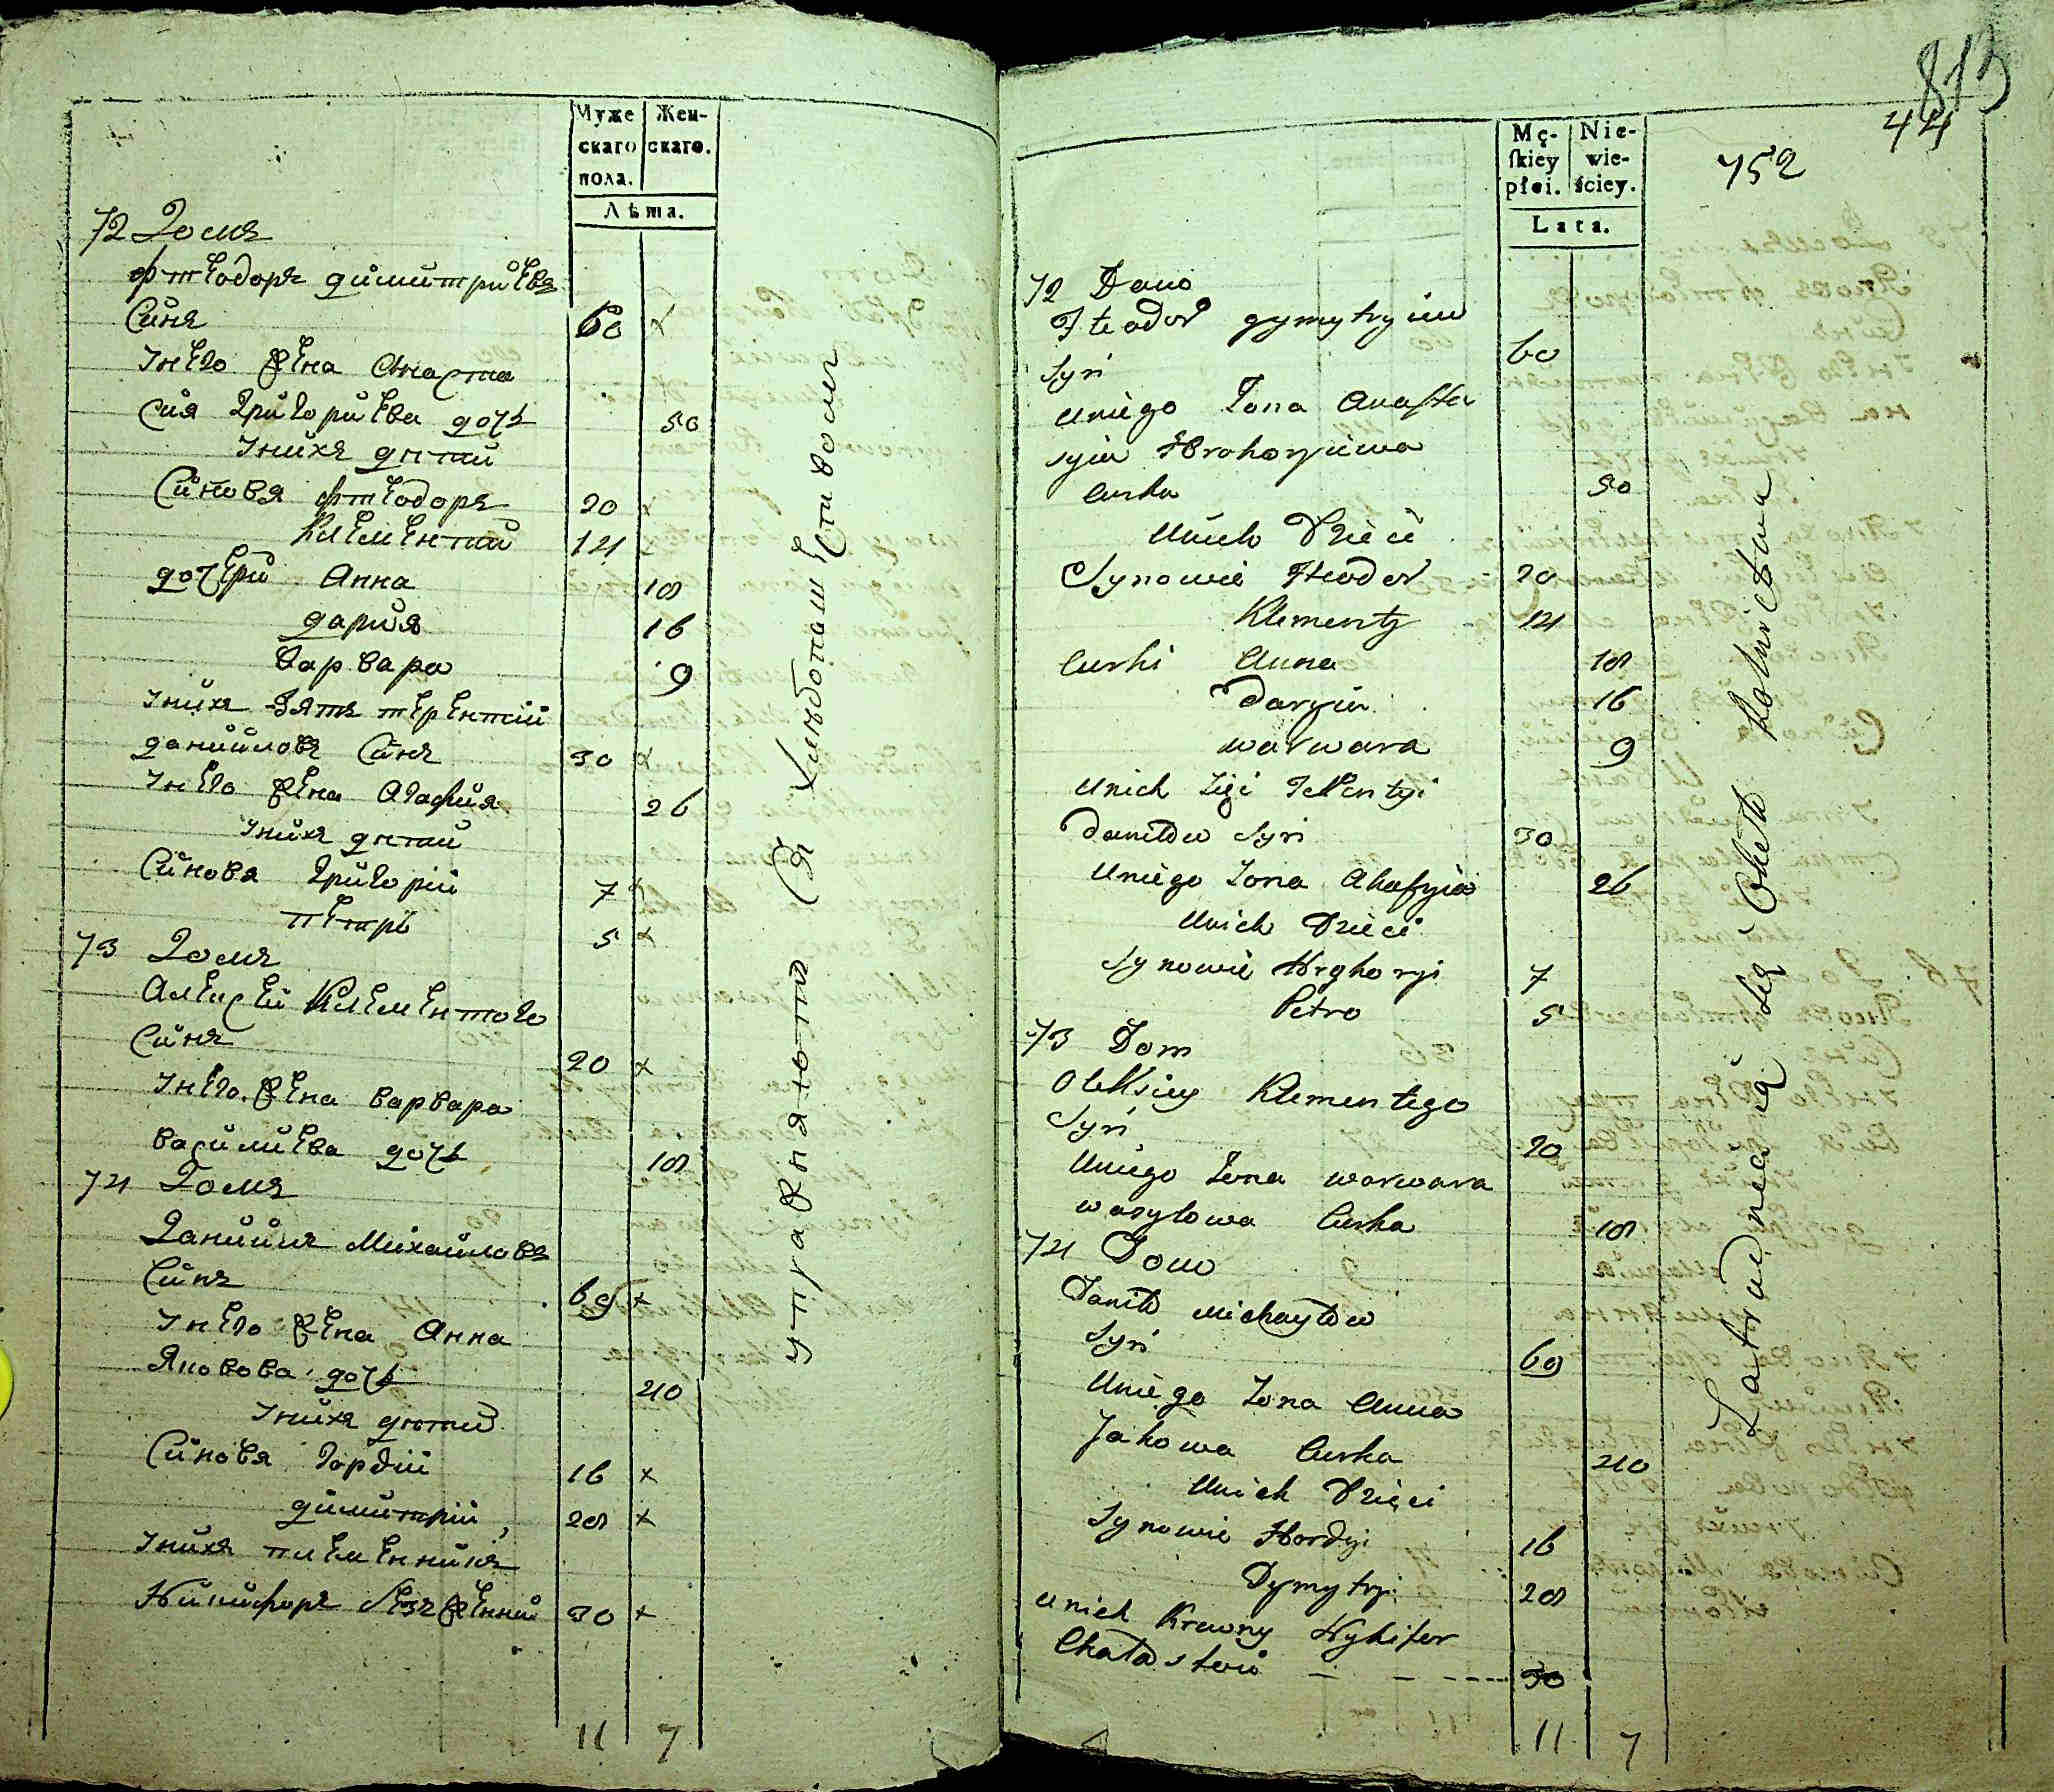 Муже
скаго
пола.
Жен-
скаго.
Лѣта.
72 Домъ
Фтеодоръ димитриевъ
Синъ 60 x
Унего жена Анаста
сия Григориева дочь 50
Унихъ дѣтии
Синовя фтеодоръ 20 x
Климентии 14
дочери Анна 18
дария 16
варвара 9
Унихъ зять терентии
данииловъ Синъ 30 x
Унего жена Агафия 26
Унихъ дѣтии
Синовя Григории 7 x
петръ 5 x
73 Домъ
Алексеи Климентого
Синъ 20 x
Унего жена варвара
василиева дочь 18
74 Домъ
Даниилъ Михаиловъ
Синъ 69 x
Унего жена Анна
Яковова дочь 40
Унихъ дѣтии
Синовя Гордии 16 x
димитрии 28 x
Унихъ племенникъ
Никифоръ 30 x
11 7
упражняются Хлебопашеством
813
44
752
Mę-
skiey
płci.
Nie-
wie-
ściey.
Lata.
72 Dom
Fteodor Dymytryiew
Syn 60
Uniego Zona Anasta
syia Hrehoryiewa
Curka 50
Unich Dzieci
Synowie Fteodor 20
Klementy 14
Curki Anna 18
Daryia 16
warwara 9
Unich Zięć Terentyi
Daniłow Syn 30
Uniego Zona Ahafyia 26
Unich Dzieci
Synowie Hryhoryi 7
Petro 5
73 Dom
Oleksiey Klementego
Syn 20
Uniego Zona warwara
wasylowa Curka 18
74 Dom
Daniło Michayłow
Syn 69
Uniego Zona Anna
Jakowa Curka 40
Unich Dzieci
Synowie Hordyi 16
Dymytryi 28
Unich Krewny Nykifor
30
11 7
Zatrudniaią się Około Rolnictwa